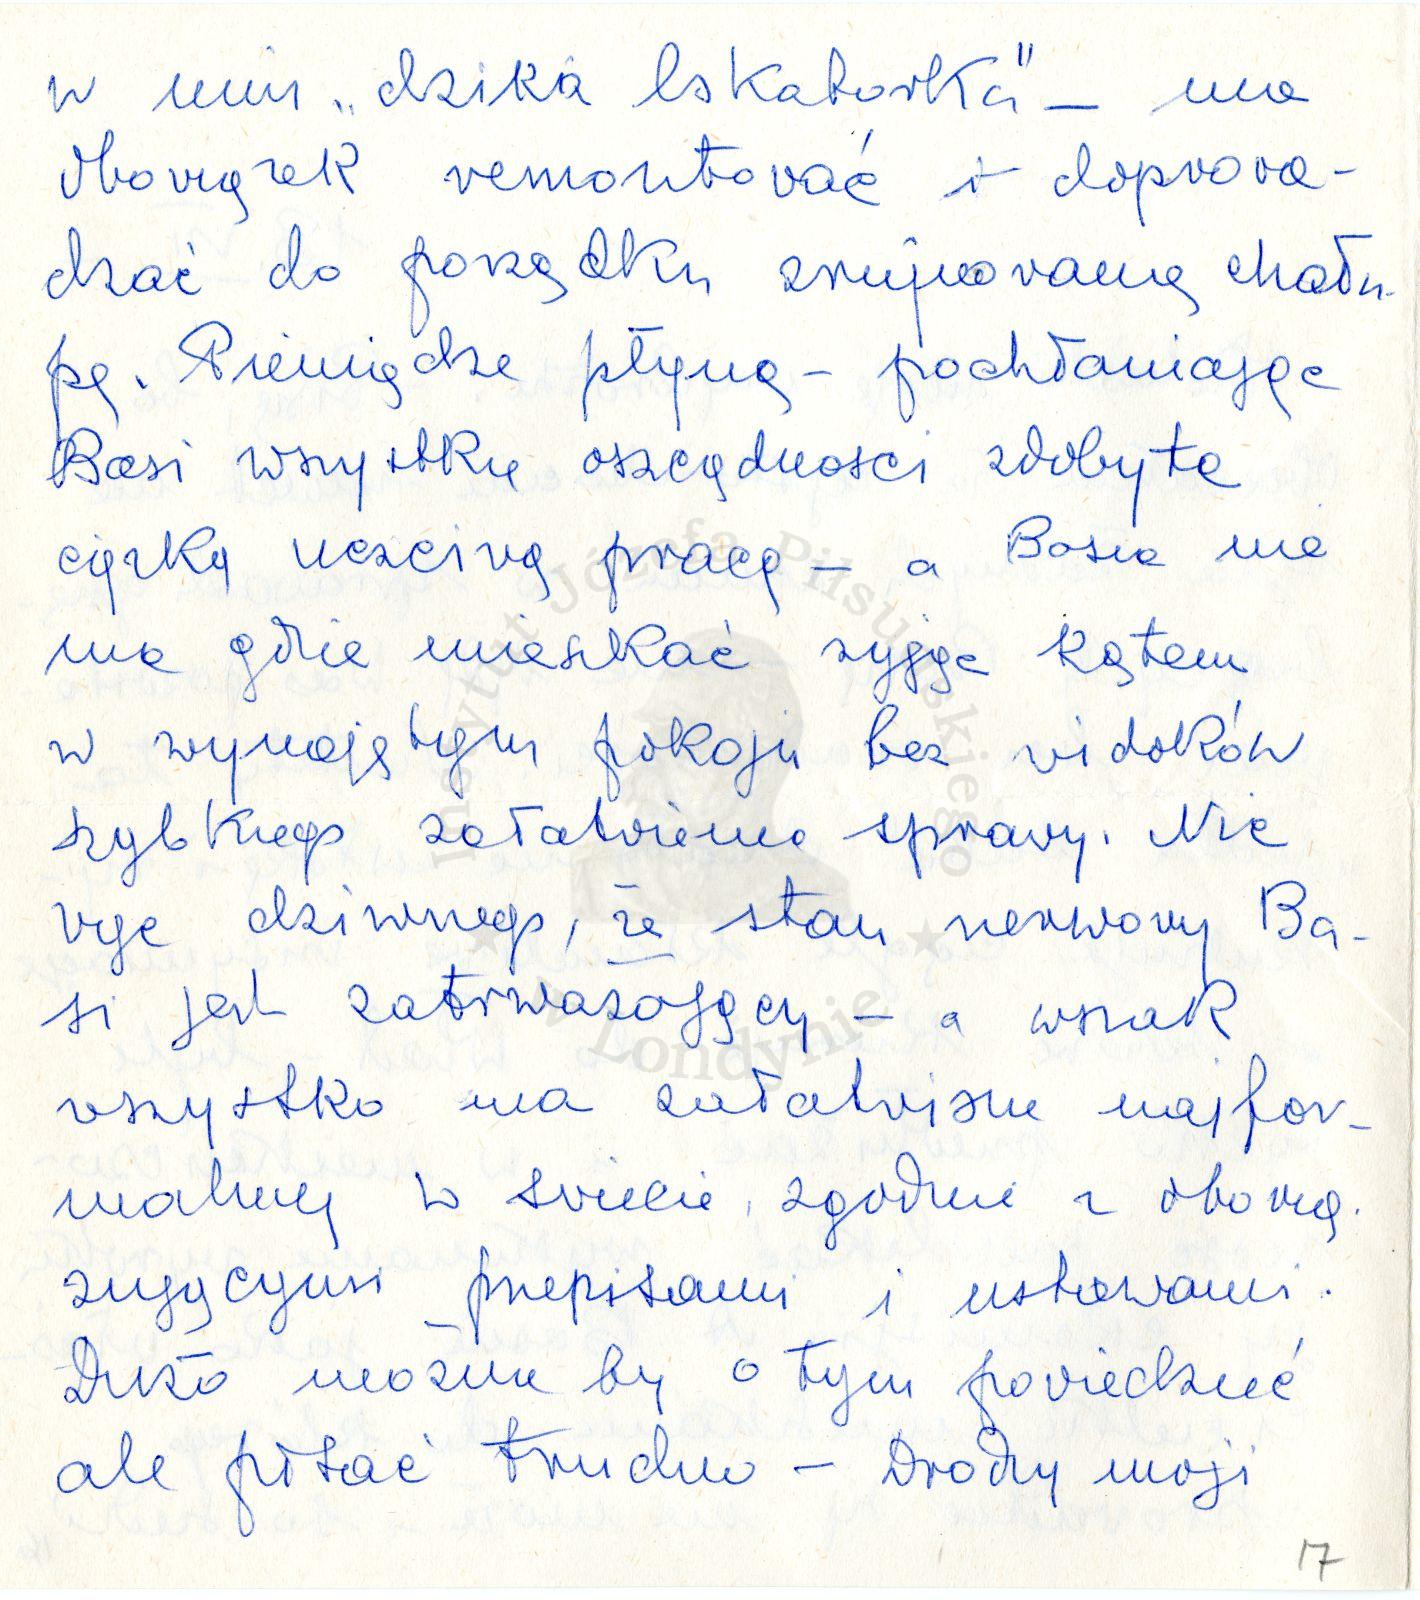 w nim „dzika lokatorka" — ma
obowiązek remontować i doprowa-
dzać do porządku zrujnowaną chału-
pę. Pieniądze płyną – pochłaniając
Basi wszystkie oszczędności zdobyte
ciężką uczciwą pracą – a Basia nie
ma gdzie mieszkać żyjąc kątem
w wynajętym pokoju bez widoków
szybkiego załatwienia sprawy. Nic
więc dziwnego, że stan nerwowy Ba-
si jest zatrważający – a wszak
wszystko ma załatwione najfor-
malniej w świecie, zgodnie z obowią-
zującymi przepisami i ustawami.
Dużo można by o tym powiedzieć
ale pisać trudno – Drodzy moji
17
Instytut Józefa Piłsudskiego
w Londynie